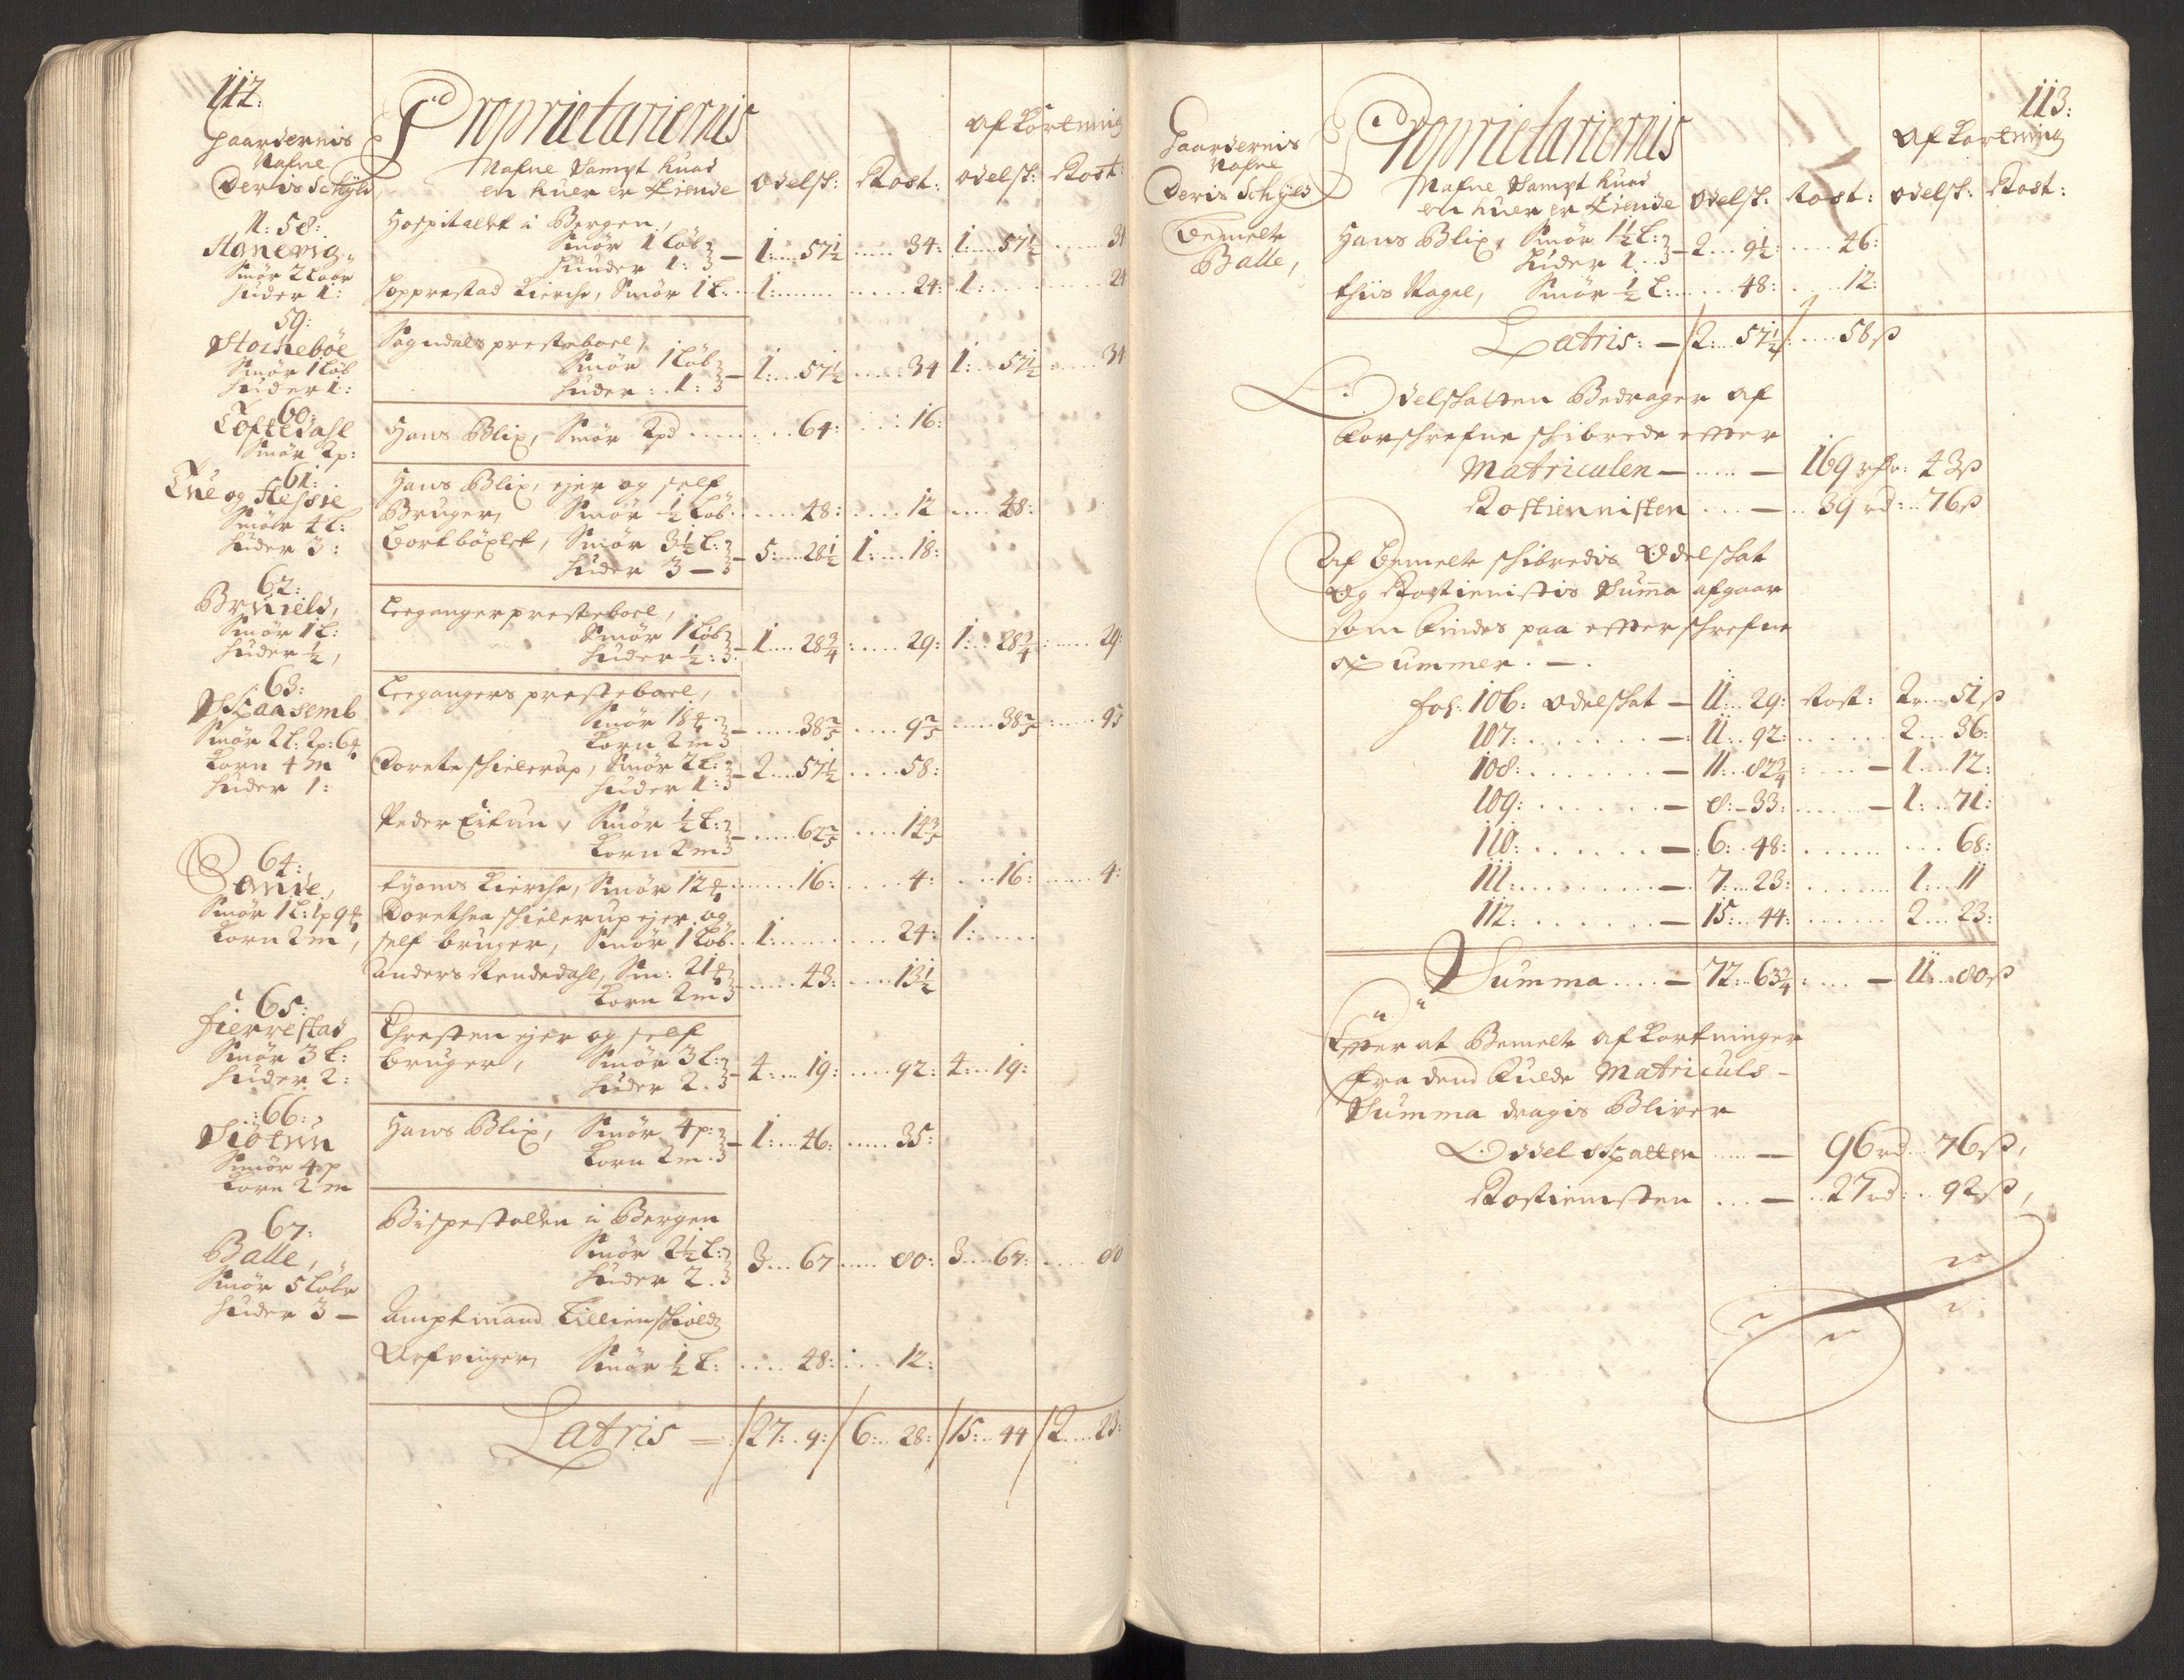 112:
Gaardernis
Nafne
Deris Schyld,
Proprietariernis
Nafne Sampt huad
en huer er Eiende
Odelsk: Rost:
Afkortning
odelsk: Rost:
N: 58:
Stonerig,
Smør 2 Laar
huder 1:
Hospitallet i Bergen,
Smør 1 løb
huuder 1: — 1: 57½ 34: 1: 57½ 34
Lopprestad Kierche, Smør 1 l. 1: 24: 1: 24
59:
Stoenebøe
Smør 1 løb
huder 1:
Sogndals presteboel,
Smør 1 løb
huder: 1: — 1: 57½ 34 1: 57½ 34
60:
Loftesahl
Smør 2p:
Hans Blix, Smør 2pd 64: 16:
61:
Smør 4 l:
huder 3:
Hans Blix, ejer og self
Bruger, Smør ½ løb 48: 12 48:
bortbøxlet, Smør 3½ l:
huder 3 — 5: 28½ 1: 18:
62:
Smør 1 l:
huder ½,
Leeganger presteboel,
Smør 1 løb
huder ½: 1 28¾ 29: 1: 28¾ 29:
63:
Smør 2 l: 2p: 6
Korn 4 m
huder 1:
Leegangers presteboel,
Smør 18
Korn 2 m 38 2/5 9 38 2/5 9
Dorete Schielerup, Smør 2 l:
huder 1: 2 57½ 58:
Peder Eitun, Smør ½ l:
Korn 2 m 62 2/5 14 3/5
64:
Smør 1 l: 1p 9
Korn 2 m,
Kyams Kierche, Smør 12 16: 4: 16: 4:
Dorethea Schielerup ejer og
self bruger, Smør 1 løb 1: 24: 1:
Anders Rendedahl, Sm: 21
Korn 2 m 43: 13½
65:
Fierrestad
Smør 3 l:
huder 2:
Chresten ejer og self
bruger, Smør 3 l:
huder 2. 4: 19: 92: 4: 19:
66:
Smør 4 p
Korn 2 m
Hans Blix, Smør 4 p:
Korn 2 m 1: 46: 35:
67:
Balle,
Smør 5 løbe
huder 3 —
Bispestollen i Bergen
Smør 2½ l:
huder 2. 3 67 80: 3 67: 80
Amptmand Lillienschiolds
Arfvinger, Smør ½ l: 48: 12:
Latris — 27: 9: 6: 28: 15: 44 2 23:
113:
Gaardernis
Nafne
Deris Schyld
Proprietariernis
Nafne Sampt huad
en huer er Eiende
Odelsk: Rost:
Afkortning
odelsk: Rost:
Bemelte
Balle,
Hans Blix, Smør 1½ l:
huder 1 — 2 9½ 46:
Thiis Nagel, Smør ½ l: 48: 12:
Latris: — 2: 57½ 58 ß
Odelskatten Bedrager af
forschrefne schibrede effter
Matriculen — 169 rdr: 43 ß
Rostiennisten — 39 rd: 76 ß
Af Bemelte schibredis Odelskat
og Rostienistis Summa afgaar
som findes paa effterschrefne
Summer. —.
fol. 106: Odelskat — 11: 29: Rost: 2 r 51 ß
107: — 11 92: 2 36:
108: — 11: 82¾: — 1 12:
109: — 8: 33: — 1: 71:
110: — 6: 48: 68:
111: — 7: 23: 1: 11
112: — 15: 44: 2 23:
Summa — 72: 63¾: — 11: 80 ß
Effter at Bemelte afkortninger
fra dend fulde Matriculs-
Summa dragis Bliver
Odelskatten — 96 rd 76 ß,
Rostienisten — 27 rd: 92 ß,